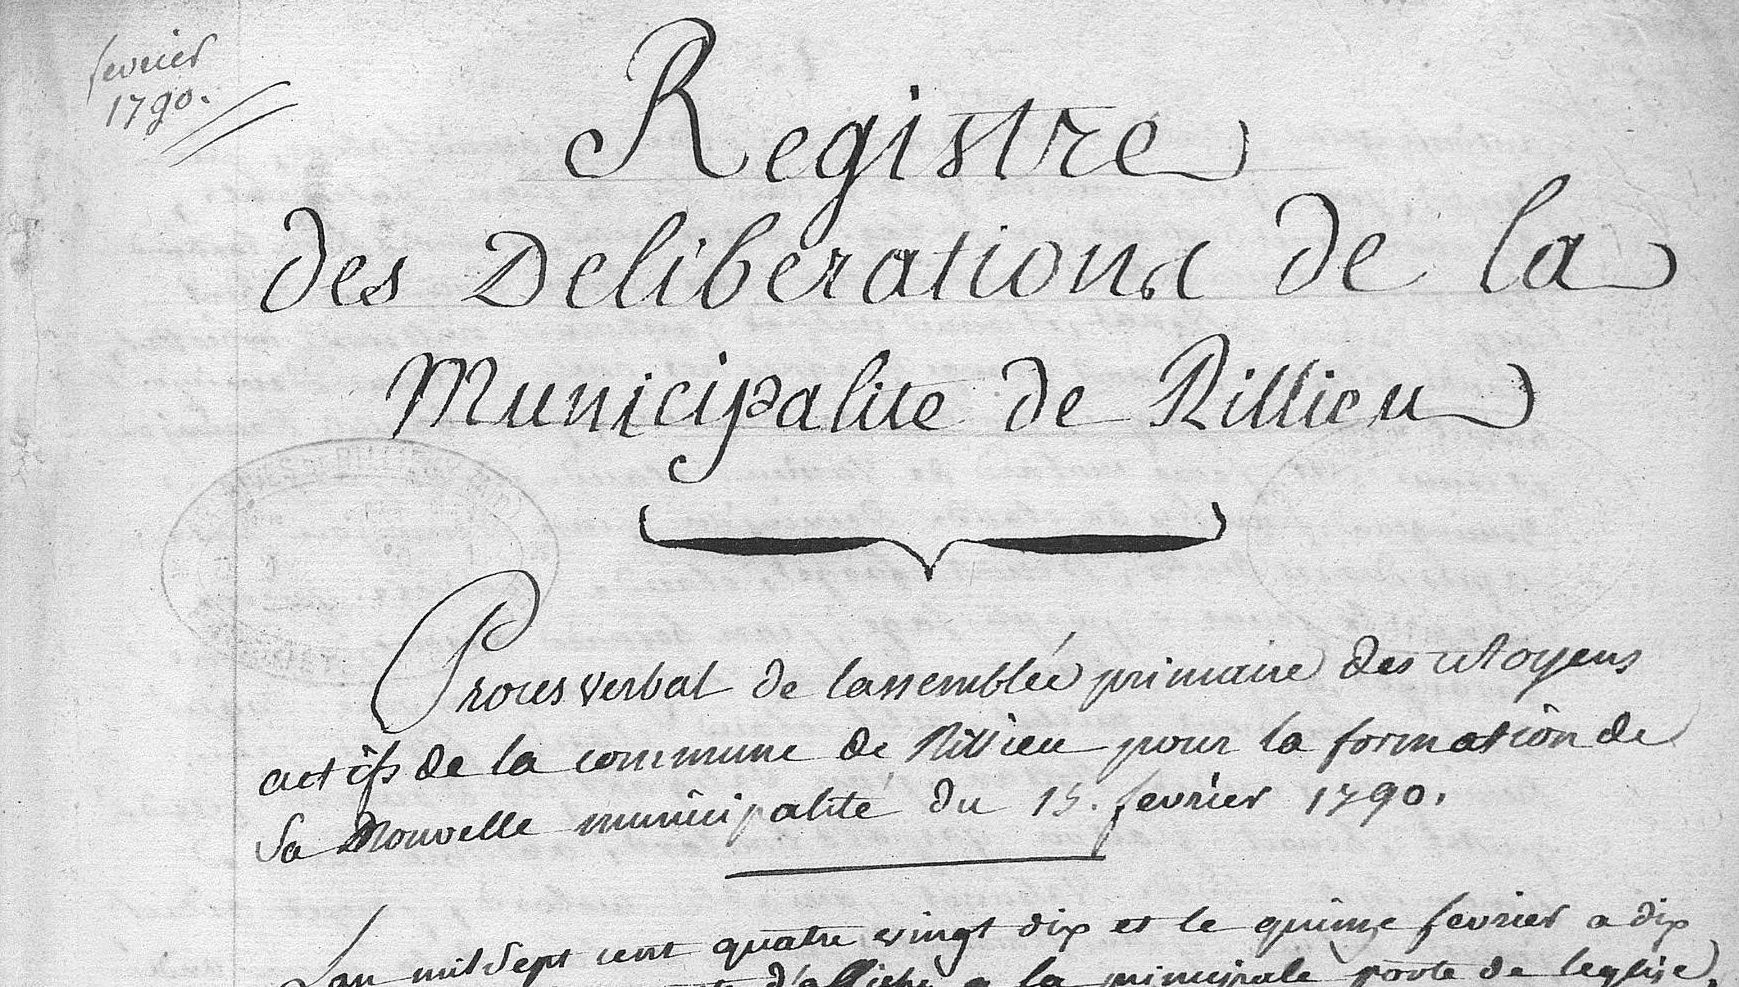 fevrier
1790.
Registre
des Deliberations de la
Municipalite de Rillieu
Proces verbal de lassemblée primaire des citoyens
actifs de la commune de Rillieu pour la formation de
Sa Nouvelle municipalité du 15. fevrier 1790.
Lan mil Sept cent quatre vingt dix et le quinze fevrier a dix
d'affiche a la principale porte de leglise,